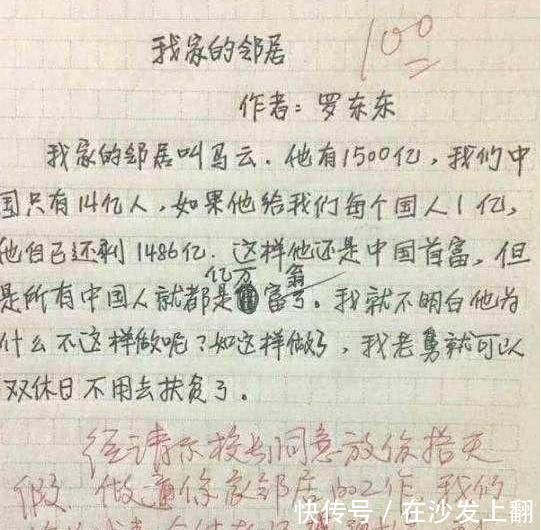 我家的邻居
100
作者：罗东东
我家的邻居叫马云．他有1500亿，我们中
国只有14亿人，如果他给我们每个国人1亿，
他自己还剩1486亿．这样他还是中国首富，但
亿万 翁
是所有中国人就都是富了。我就不明白他为
什么不这样做呢？如这样做了，我老舅就可以
双休日不用去扶贫了。
经请示校长同意放你拾天
假 做通你家邻居的工作 我们
快传号/在沙发上翻